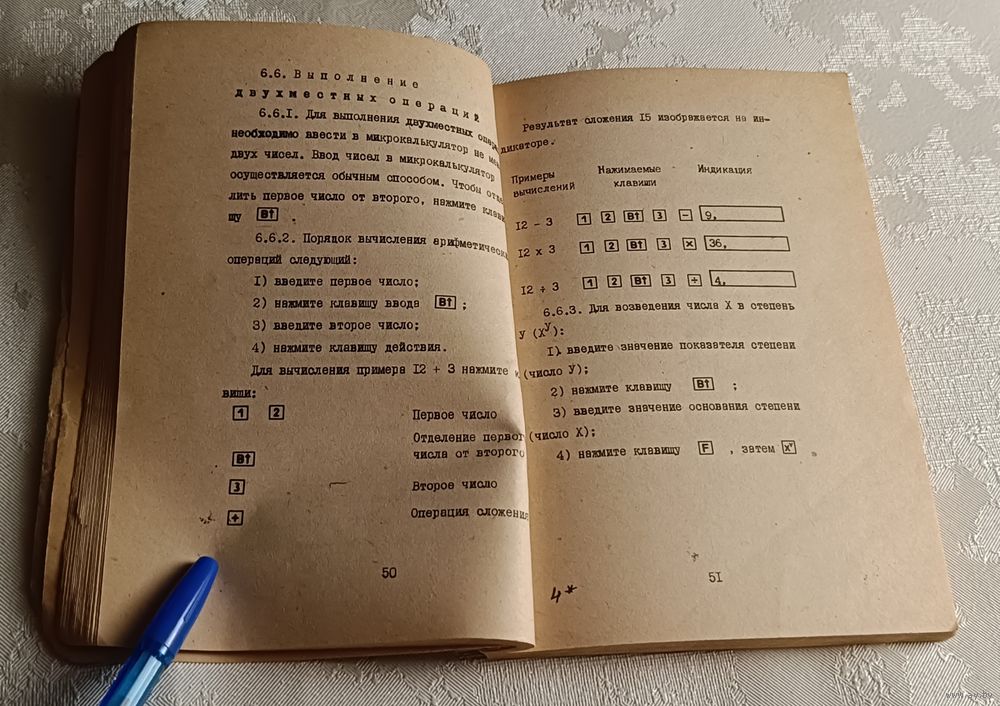 6.6. Выполнение
двухместных операций
6.6.I. Для выполнения двухместных опера
необходимо ввести в микрокалькулятор не ме
двух чисел. Ввод чисел в микрокалькулятор
осуществляется обычным способом. Чтобы отде
лить первое число от второго, нажмите клави
шу В↑ .
6.6.2. Порядок вычисления арифметически
операций следующий:
I) введите первое число;
2) нажмите клавишу ввода В↑ ;
3) введите второе число;
4) нажмите клавишу действия.
Для вычисления примера I2 + 3 нажмите к
виши:
1 2 Первое число
Отделение первог
В↑ числа от второго
3 Второе число
+ Операция сложения
50
Результат сложения I5 изображается на ин-
дикаторе.
Примеры вычислений Нажимаемые клавиши Индикация
I2 - 3 1 2 В↑ 3 - 9,
I2 x 3 1 2 В↑ 3 × 36,
I2 ÷ 3 1 2 В↑ 3 ÷ 4,
6.6.3. Для возведения числа X в степень
У (X^У):
I) введите значение показателя степени
(число У);
2) нажмите клавишу В↑ ;
3) введите значение основания степени
(число X);
4) нажмите клавишу F , затем X^Y .
5I
4*
www.ay.by